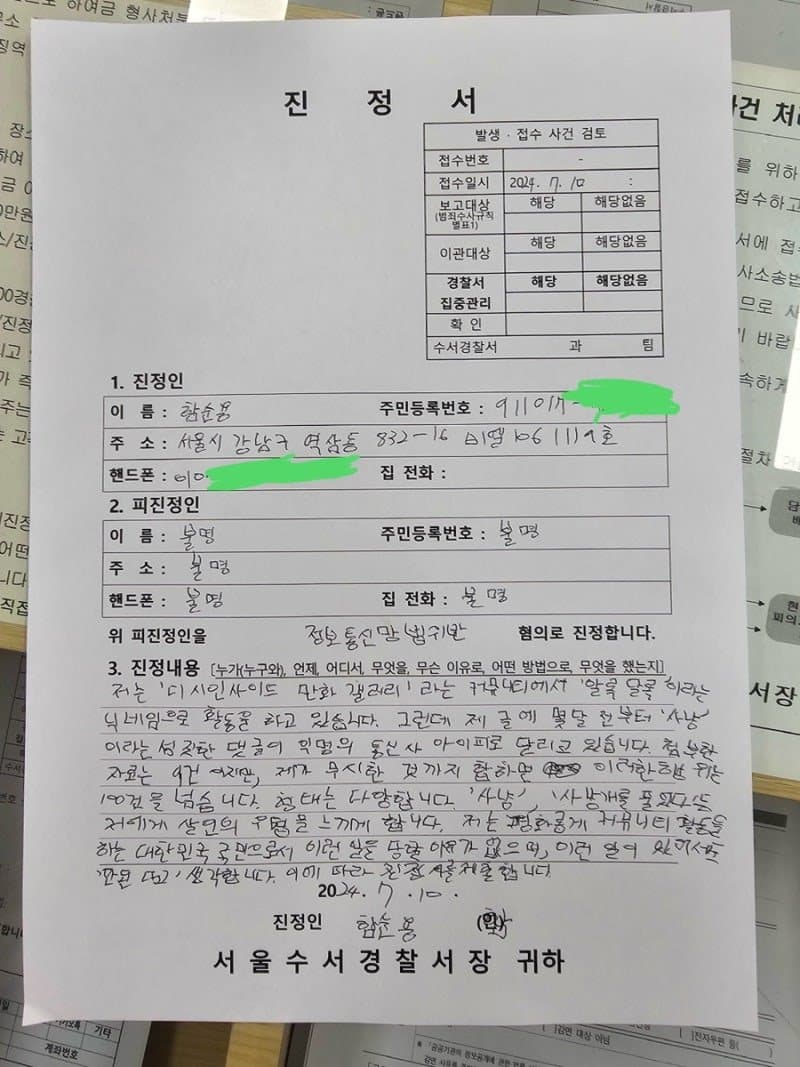 진 정 서
발생 · 접수 사건 검토
접수번호 -
접수일시 2024. 7. 10 :
보고대상 (범죄수사규칙 별표1) 해당 해당없음
이관대상 해당 해당없음
경찰서 집중관리 해당 해당없음
확 인
수서경찰서 과 팀
1. 진정인
이 름 : 함순용 주민등록번호 : 911017-
주 소 : 서울시 강남구 역삼동 832-16 1119호
핸드폰 : 010- 집 전화 :
2. 피진정인
이 름 : 불명 주민등록번호 : 불명
주 소 : 불명
핸드폰 : 불명 집 전화 : 불명
위 피진정인을 정보통신망법위반 혐의로 진정합니다.
3. 진정내용 [누가(누구와), 언제, 어디서, 무엇을, 무슨 이유로, 어떤 방법으로, 무엇을 했는지]
저는 '디시인사이드 만화 갤러리' 라는 커뮤니티에서 '알록달록'이라는
닉네임으로 활동을 하고 있습니다. 그런데 제 글에 몇달 전부터 '사냥'
이라는 섬찟한 댓글이 익명의 통신사 아이피로 달리고 있습니다. 첨부한
자료는 9건 이지만, 제가 무시한 것까지 합하면 이러한 행위는
100건을 넘습니다. 형태는 다양합니다. '사냥', '사냥개를 풀었다' 등
저에게 살인의 위협을 느끼게 합니다. 저는 평화롭게 커뮤니티 활동을
하는 대한민국 국민으로서 이런 일을 당할 이유가 없으며, 이런 일이 있어서는
안된다고 생각합니다. 이에 따라 진정서를 제출합니다.
2024. 7. 10.
진정인 함순용 (인)
서 울 수 서 경 찰 서 장 귀 하
사건 처리
를 위하
접수하고
서에 접수
사소송법
므로 사
기 바랍
속하게
절차
서장
하여금 형사처분
기타
계좌번호